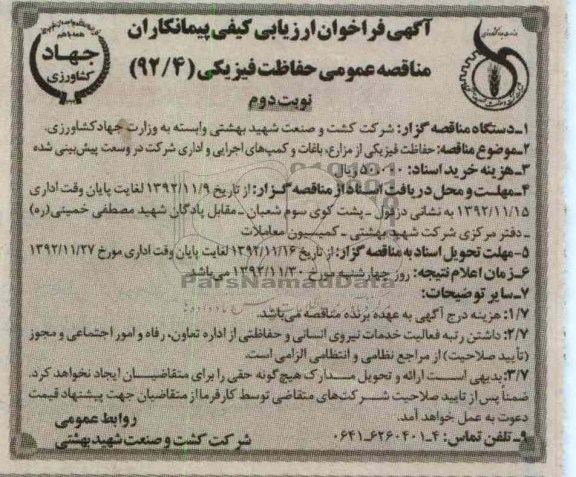 آگهی فراخوان ارزیابی کیفی پیمانکاران
مناقصه عمومی حفاظت فیزیکی (۹۲/۴)
نوبت دوم
جهاد
کشاورزی
۱ـ دستگاه مناقصه گزار: شرکت کشت و صنعت شهید بهشتی وابسته به وزارت جهاد کشاورزی.
۲ـ موضوع مناقصه: حفاظت فیزیکی از مزارع، باغات و کمپ‌های اجرایی و اداری شرکت در وسعت پیش‌بینی شده
۳ـ هزینه خرید اسناد: ۵۰۰۰۰۰ ریال
۴ـ مهلت و محل دریافت اسناد از مناقصه گزار: از تاریخ ۱۳۹۲/۱۱/۹ لغایت پایان وقت اداری
۱۳۹۲/۱۱/۱۵ به نشانی دزفول ـ پشت کوی سوم شعبان ـ مقابل پادگان شهید مصطفی خمینی(ره)
ـ دفتر مرکزی شرکت شهید بهشتی ـ کمیسیون معاملات
۵ـ مهلت تحویل اسناد به مناقصه گزار: از تاریخ ۱۳۹۲/۱۱/۱۶ لغایت پایان وقت اداری مورخ ۱۳۹۲/۱۱/۲۷
۶ـ زمان اعلام نتیجه: روز چهارشنبه مورخ ۱۳۹۲/۱۱/۳۰ می‌باشد.
ParsNamadData
۷ـ سایر توضیحات:
۱/۷: هزینه درج آگهی به عهده برنده مناقصه می‌باشد.
۲/۷: داشتن رتبه فعالیت خدمات نیروی انسانی و حفاظتی از اداره تعاون، رفاه و امور اجتماعی و مجوز
(تأیید صلاحیت) از مراجع نظامی و انتظامی الزامی است.
۳/۷: بدیهی است ارائه و تحویل مدارک هیچ گونه حقی را برای متقاضیان ایجاد نخواهد کرد.
ضمناً پس از تایید صلاحیت شرکت‌های متقاضی توسط کارفرما از متقاضیان جهت پیشنهاد قیمت
دعوت به عمل خواهد آمد.
۹ـ تلفن تماس: ۴ـ۶۲۶۰۴۰۱ـ۰۶۴۱
روابط عمومی
شرکت کشت و صنعت شهید بهشتی